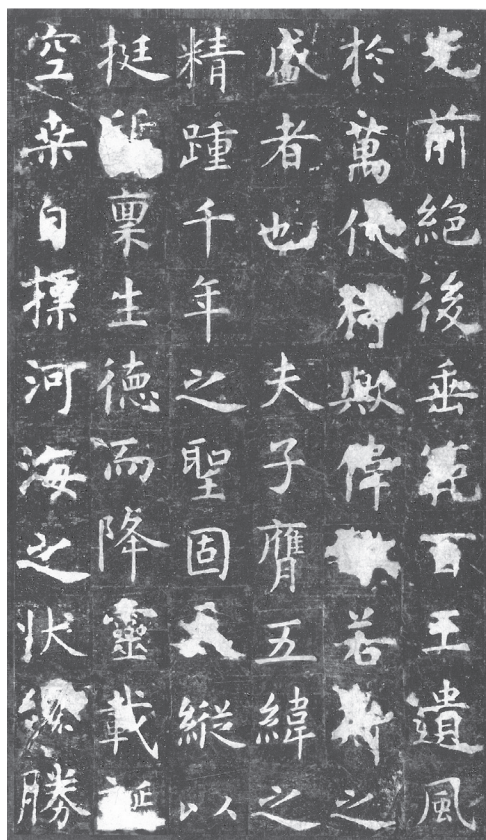 光前絕後垂範百王遺風
於萬代猗歟偉若斯之
盛者也 夫子膺五緯之
精踵千年之聖固天縱以
挺稟生德而降靈載誕
空桑自標河海之狀纔勝